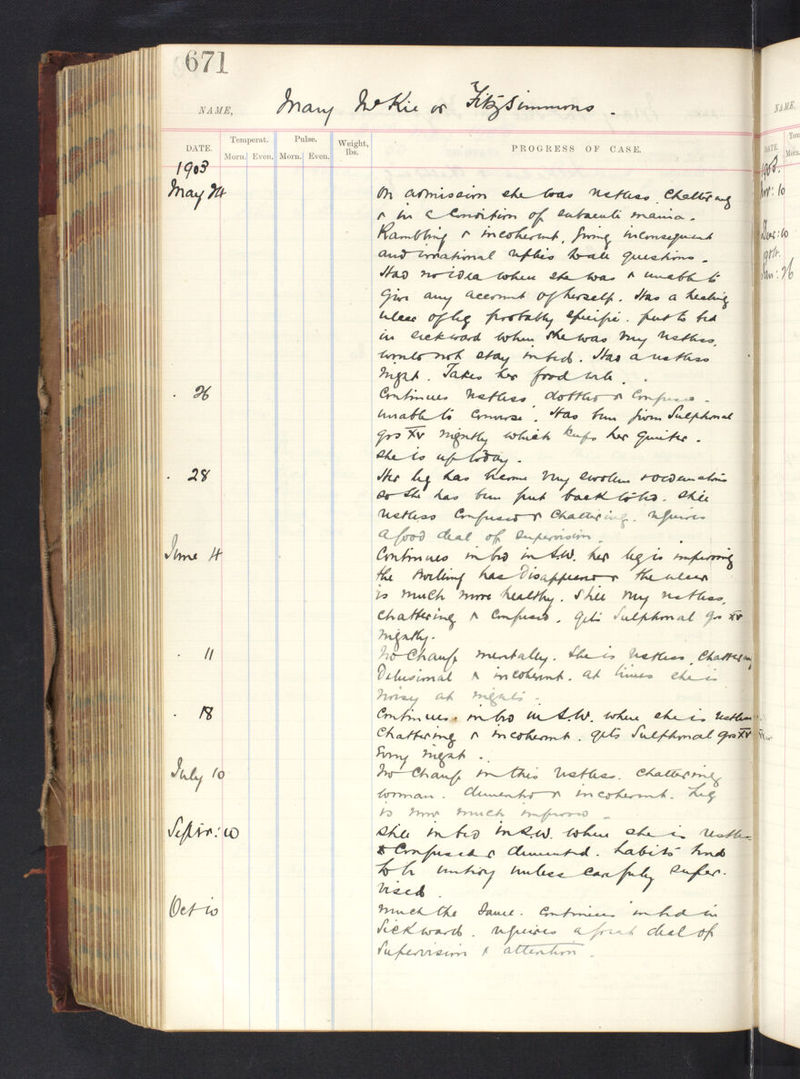 671
NAME, Mary McKie or FitzSimmons.
DATE. Temperat. Pulse. Weight, lbs. PROGRESS OF CASE.
Morn. Even. Morn. Even.
1903
May 24 On admission she was restless, chattering
& in a condition of subacute mania.
Rambling & incoherent, giving inconsequent
and irrational replies to all questions.
Had no idea where she was & unable to
give any account of herself. Has a healing
ulcer of leg probably specific. put to bed
in sick ward where she was very restless,
would not stay in bed. Had a restless
night. Takes her food well.
. 26 Continues restless, dotted & confused.
unable to converse. Has been given Sulphonal
grs XV nightly which keeps her quieter.
She is up today.
. 28 Her leg has become very swollen & oedematous
so she has been put back to bed. Still
restless confused & chattering. requires
a good deal of supervision.
June 4 Continues in bed in S.W. her leg is improving
the swelling has disappeared & the ulcer
is much more healthy. Still very restless,
chattering & confused. gets Sulphonal grs XV
nightly.
. 11 No change mentally. She is restless, chattering
delusional & incoherent. at times she is
noisy at nights.
. 18 Continues in bed in S.W. where she is restless
chattering & incoherent. gets Sulphonal grs XV
every night.
July 10 No change in this restless, chattering
woman. demented & incoherent. Leg
is now much improved.
Septr: 10 Still in bed in S.W. where she is restless
& confused & demented. habits tend
to be untidy unless carefully super-
vised.
Oct 10 Much the same. Continues in bed in
sick ward. requires a great deal of
supervision & attention.
NAME,
DATE. Morn.
1903.
Novr: 10
Decr: 10
1904.
Jan: 26